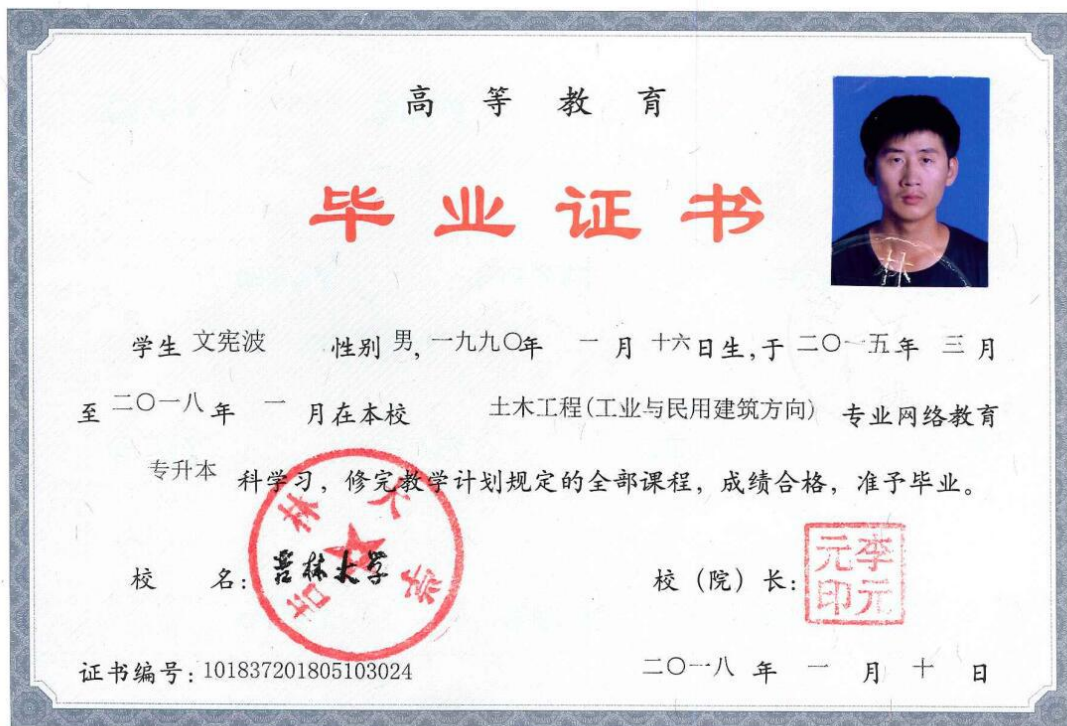 高等教育
毕业证书
学生 文宪波 性别 男, 一九九〇年 一 月 十六日生,于 二〇一五年 三 月
至 二〇一八 年 一 月在本校 土木工程(工业与民用建筑方向) 专业网络教育
专升本 科学习，修完教学计划规定的全部课程，成绩合格，准予毕业。
校 名: 吉林大学
吉林大学
校（院）长: 李元元印
证书编号: 101837201805103024 二〇一八 年 一 月 十 日